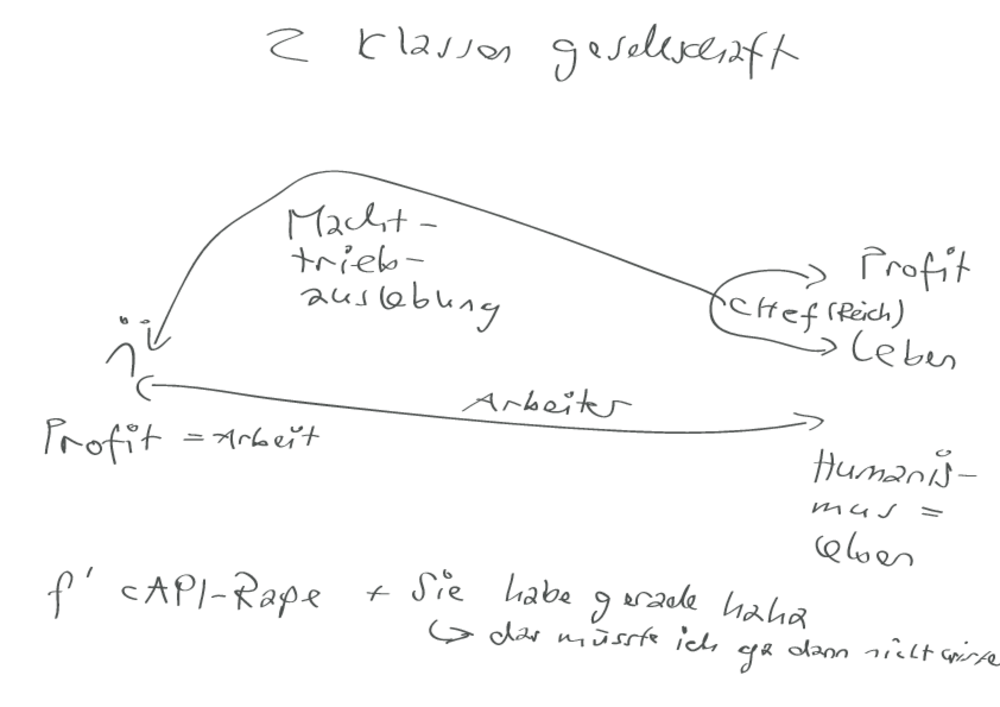 2 Klassen gesellschaft
Macht-
trieb-
auslebung
Profit
Chef (Reich)
Leben
Arbeiter
Profit = Arbeit
Humanis-
mus =
Leben
f' cAPI-Rape + Sie habe gerade haha
↳ das müsste ich ja dann nicht